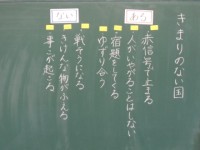 きまりのない国
ある
赤信号で止まる
人がいやがることはしない
宿題をしてくる
ゆずり合う
ない
戦そうになる
きけんな物がふえる
事こが起こる